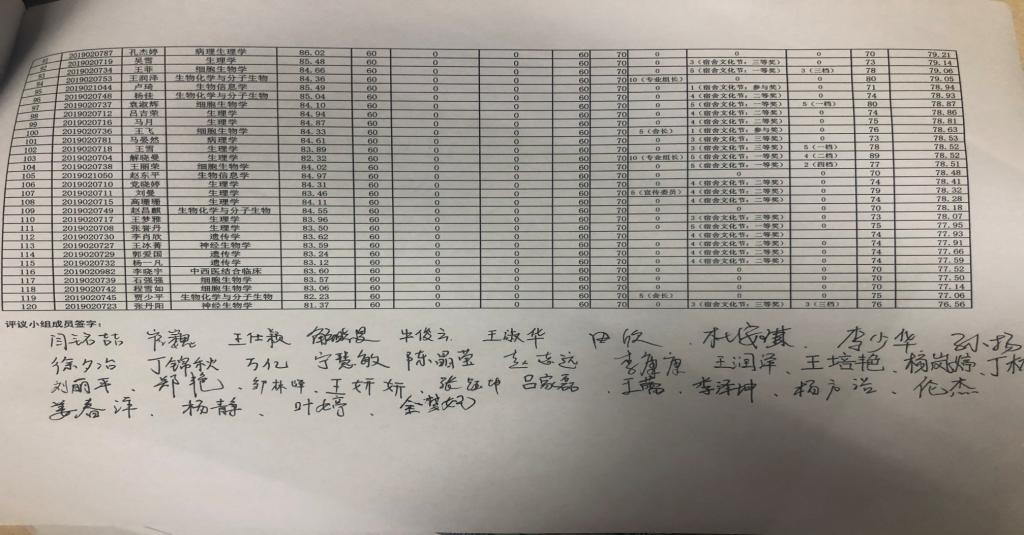 2019020787 孔杰婷 病理生理学 86.02 60 0 0 60 70 0 0 0 70 79.21
2019020719 吴雪 生理学 85.48 60 0 0 60 70 0 3（宿舍文化节：三等奖） 0 73 79.14
2019020734 王菲 细胞生物学 84.66 60 0 0 60 70 0 5（宿舍文化节：一等奖） 3（三档） 78 79.06
2019020753 王润泽 生物化学与分子生物 84.36 60 0 0 60 70 10（专业组长） 0 0 80 79.05
96 2019021044 卢琦 生物信息学 85.49 60 0 0 60 70 0 1（宿舍文化节：参与奖） 0 71 78.94
96 2019020748 杨佳 生物化学与分子生物 85.04 60 0 0 60 70 0 4（宿舍文化节：二等奖） 0 74 78.93
97 2019020737 袁淑辉 细胞生物学 84.10 60 0 0 60 70 0 5（宿舍文化节：一等奖） 5（一档） 80 78.87
98 2019020712 吕吉荣 生理学 84.94 60 0 0 60 70 0 4（宿舍文化节：二等奖） 0 74 78.86
99 2019020716 马月 生理学 84.87 60 0 0 60 70 0 4（宿舍文化节：二等奖） 0 75 78.81
100 2019020736 王飞 细胞生物学 84.33 60 0 0 60 70 5（会长） 1（宿舍文化节：参与奖） 0 76 78.63
101 2019020781 马晏然 病理学 84.61 60 0 0 60 70 0 3（宿舍文化节：三等奖） 0 73 78.53
102 2019020718 王雪 生理学 83.89 60 0 0 60 70 0 3（宿舍文化节：三等奖） 5（一档） 78 78.52
103 2019020704 解晓曼 生理学 82.32 60 0 0 60 70 10（专业组长） 5（宿舍文化节：一等奖） 4（二档） 89 78.52
104 2019020738 王丽荣 细胞生物学 84.02 60 0 0 60 70 0 5（宿舍文化节：一等奖） 2（四档） 77 78.51
105 2019021050 赵东平 生物信息学 84.97 60 0 0 60 70 0 0 0 70 78.48
106 2019020710 党晓婷 生理学 84.31 60 0 0 60 70 0 4（宿舍文化节：二等奖） 0 74 78.41
107 2019020711 刘曼 生理学 83.46 60 0 0 60 70 5（宣传委员） 4（宿舍文化节：二等奖） 0 79 78.32
108 2019020715 高珊珊 生理学 84.11 60 0 0 60 70 0 4（宿舍文化节：二等奖） 0 74 78.28
109 2019020749 赵昌麒 生物化学与分子生物 84.55 60 0 0 60 70 0 0 0 70 78.18
110 2019020717 王梦雅 生理学 83.96 60 0 0 60 70 0 3（宿舍文化节：三等奖） 0 73 78.07
111 2019020708 张誉丹 生理学 83.50 60 0 0 60 70 0 5（宿舍文化节：一等奖） 0 75 77.95
112 2019020730 李肖欣 遗传学 83.62 60 0 0 60 70 4（宿舍文化节：二等奖） 74 77.93
113 2019020727 王冰菁 神经生物学 83.59 60 0 0 60 70 0 4（宿舍文化节：二等奖） 0 74 77.91
114 2019020729 郭爱国 遗传学 83.24 60 0 0 60 70 0 4（宿舍文化节：二等奖） 0 74 77.66
115 2019020732 杨一凡 遗传学 83.12 60 0 0 60 70 0 4（宿舍文化节：二等奖） 0 74 77.59
116 2019020982 李晓宇 中西医结合临床 83.60 60 0 0 60 70 0 0 0 70 77.52
117 2019020739 石强强 细胞生物学 83.57 60 0 0 60 70 0 0 0 70 77.50
118 2019020742 程雪如 细胞生物学 83.06 60 0 0 60 70 0 0 0 70 77.14
119 2019020745 贾少平 生物化学与分子生物 82.23 60 0 0 60 70 5（会长） 0 0 75 77.06
120 2019020723 张丹阳 神经生物学 81.37 60 0 0 60 70 0 3（宿舍文化节：三等奖） 3（三档） 76 76.56
评议小组成员签字：
王仕毅 牛俊云 王淑华 田欣 李少华 孙扬
徐夕冶 丁锦秋 万亿 宁慧敏 陈晶莹 赵志远 李康康 王润泽、王培艳、杨岚婷、丁
刘丽平、郑艳、邹林峰、王妍妍、吕家磊、李泽坤、杨方治、伦杰
姜春洋、杨静、叶婷、金梦妮